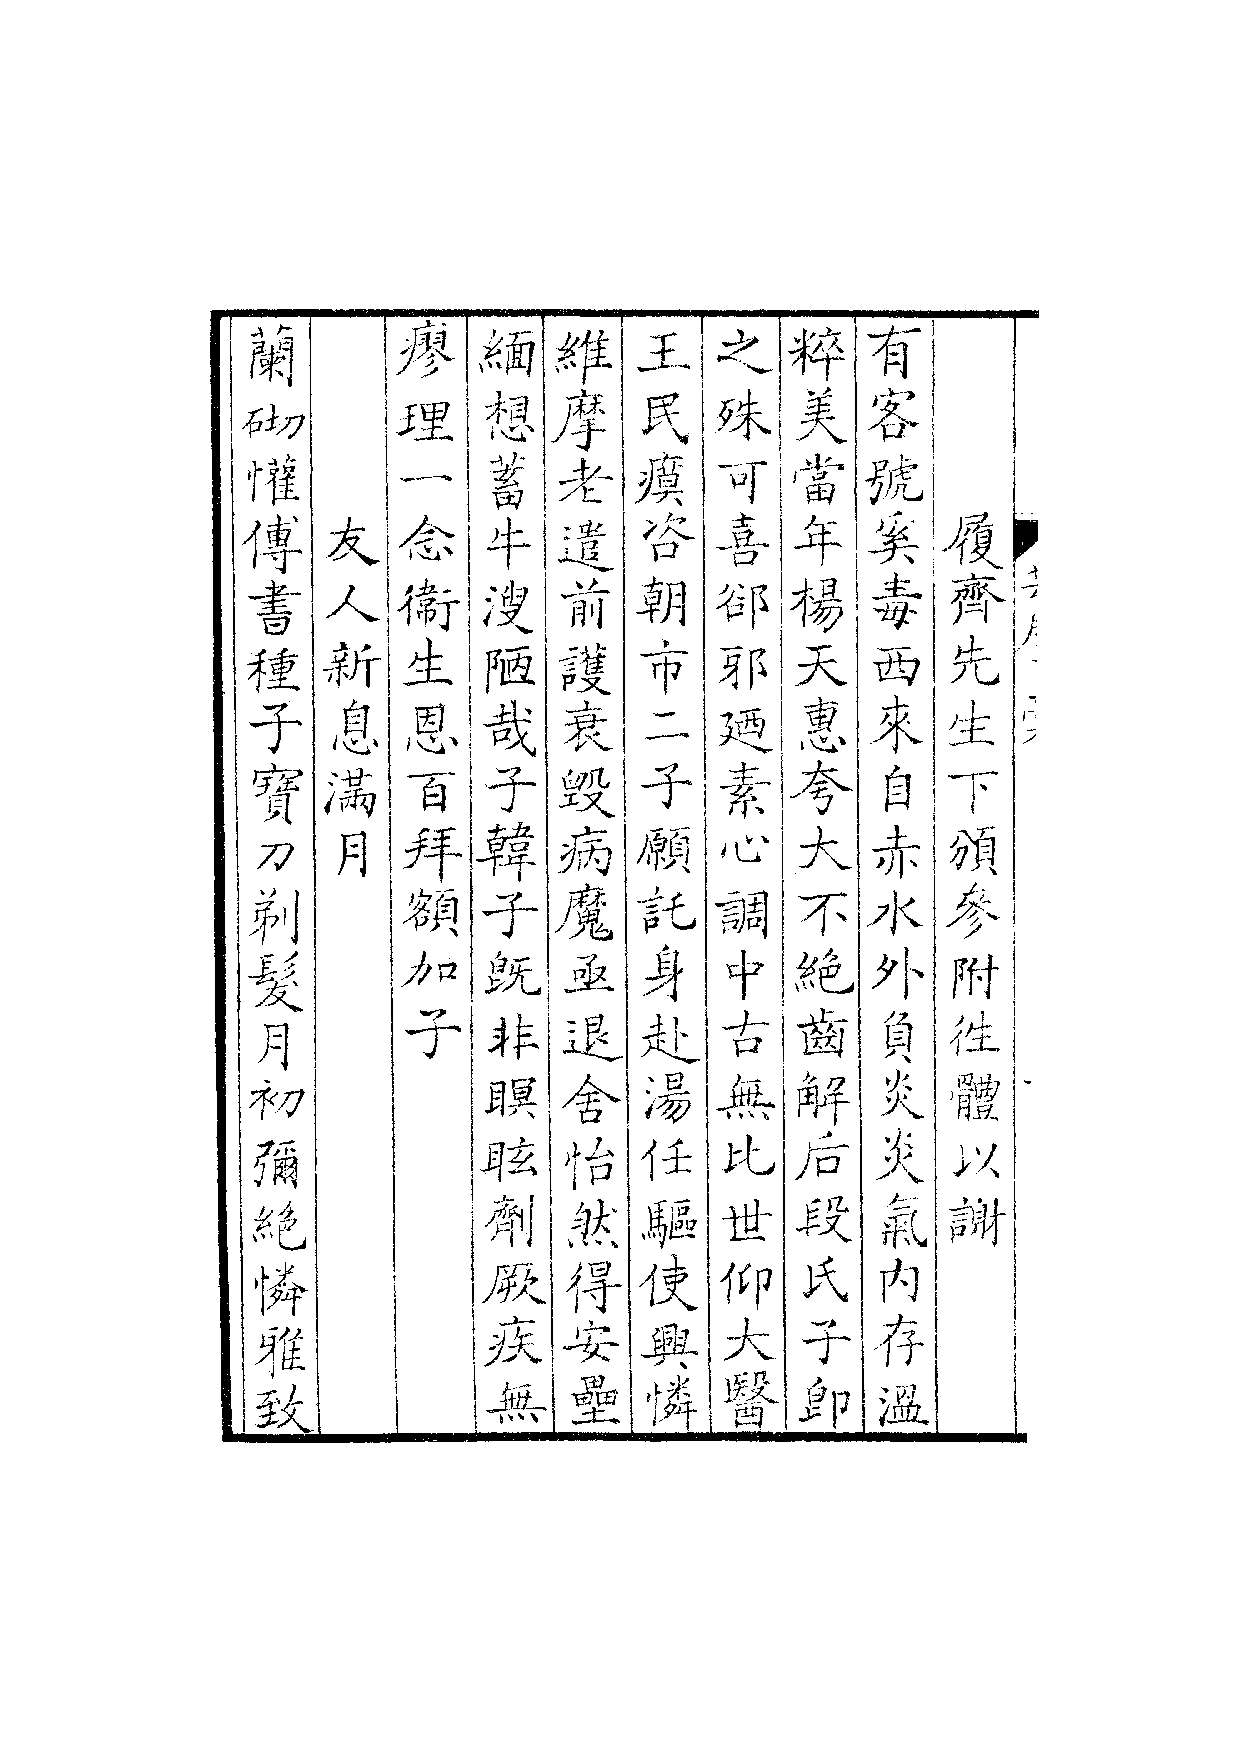 履齊先生下頒參附徃體以謝
有客號奚毒西來自赤水外負炎炎氣内存溫
粹美當年楊天惠夸大不絶齒解后段氏子卽
之殊可喜郤邪廼素心調中古無比世仰大醫
王民瘼咨朝市二子願託身赴湯任驅使興憐
維摩老遣前護衰毀病魔亟退舍怡然得安壘
緬想蓄牛溲陋哉子韓子旣非瞑眩劑厥疾無
瘳理一念衞生恩百拜額加子
友人新息滿月
蘭砌懽傳書種子寶刀剃髮月初彌絶憐雅致